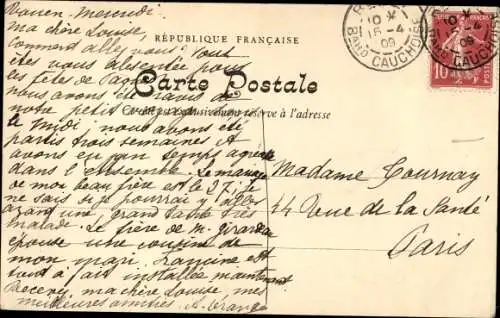 Rouen, Mercredi.
ma chère Louise,
comment allez vous? Vous
êtes vous
les fêtes de
nous avons été ravis de
notre petit voyage dans
le midi, nous avons été
partis trois semaines &
avons eu un temps agréable
dans l'ensemble. Le mariage
de mon beau frère est le 27; je
ne sais si je pourrai y aller
ayant une grand'tante très
malade. Le frère de M. Girardeau
épouse une cousine de
mon mari. est
tout à fait installée maintenant
Recevez ma chère Louise, mes
meilleures amitiés.
RÉPUBLIQUE FRANÇAISE
Carte Postale
Côté exclusivement réservé à l'adresse
Madame Tournay
44 Rue de la Santé
Paris
10 15-4 09
BARD CAUCHOISE
10 15-4 09
BARD CAUCHOISE
10